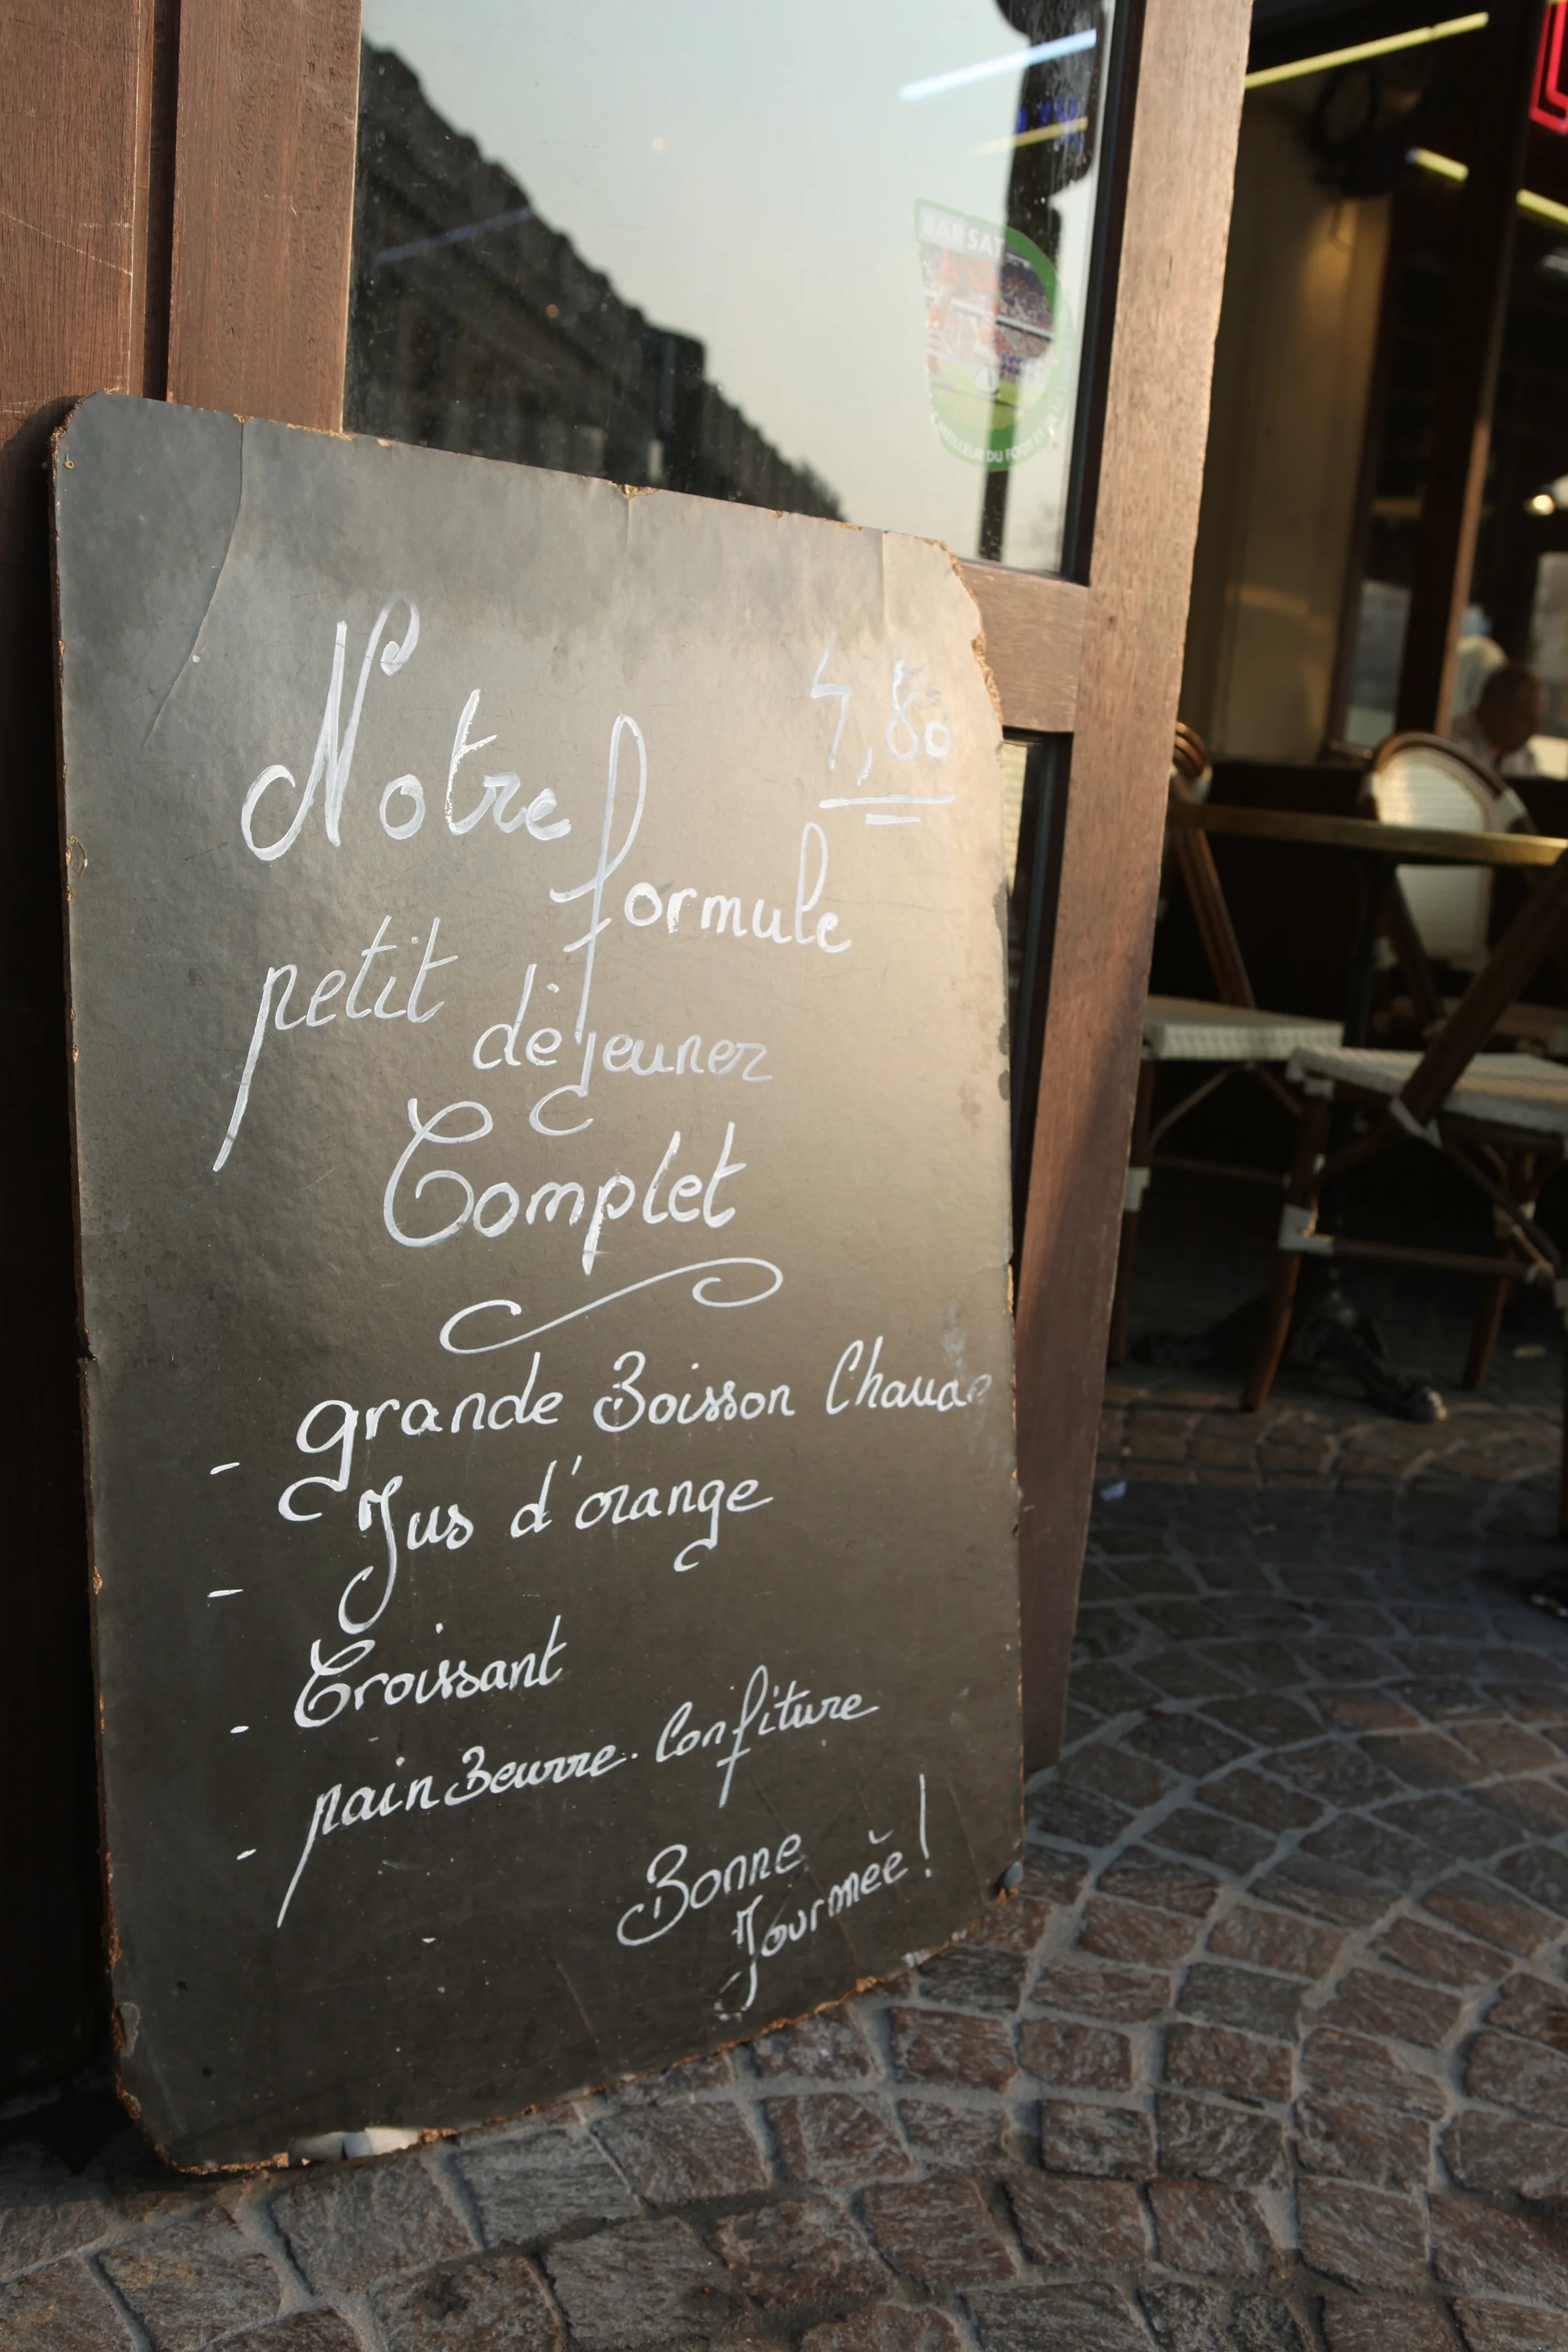 BAR SAT
LE MEILLEUR DU FOOT ET
Notre
4,80
formule
petit
déjeuner
Complet
- grande Boisson Chaude
- Jus d'orange
- Croissant
- pain Beurre. Confiture
Bonne
Journée!